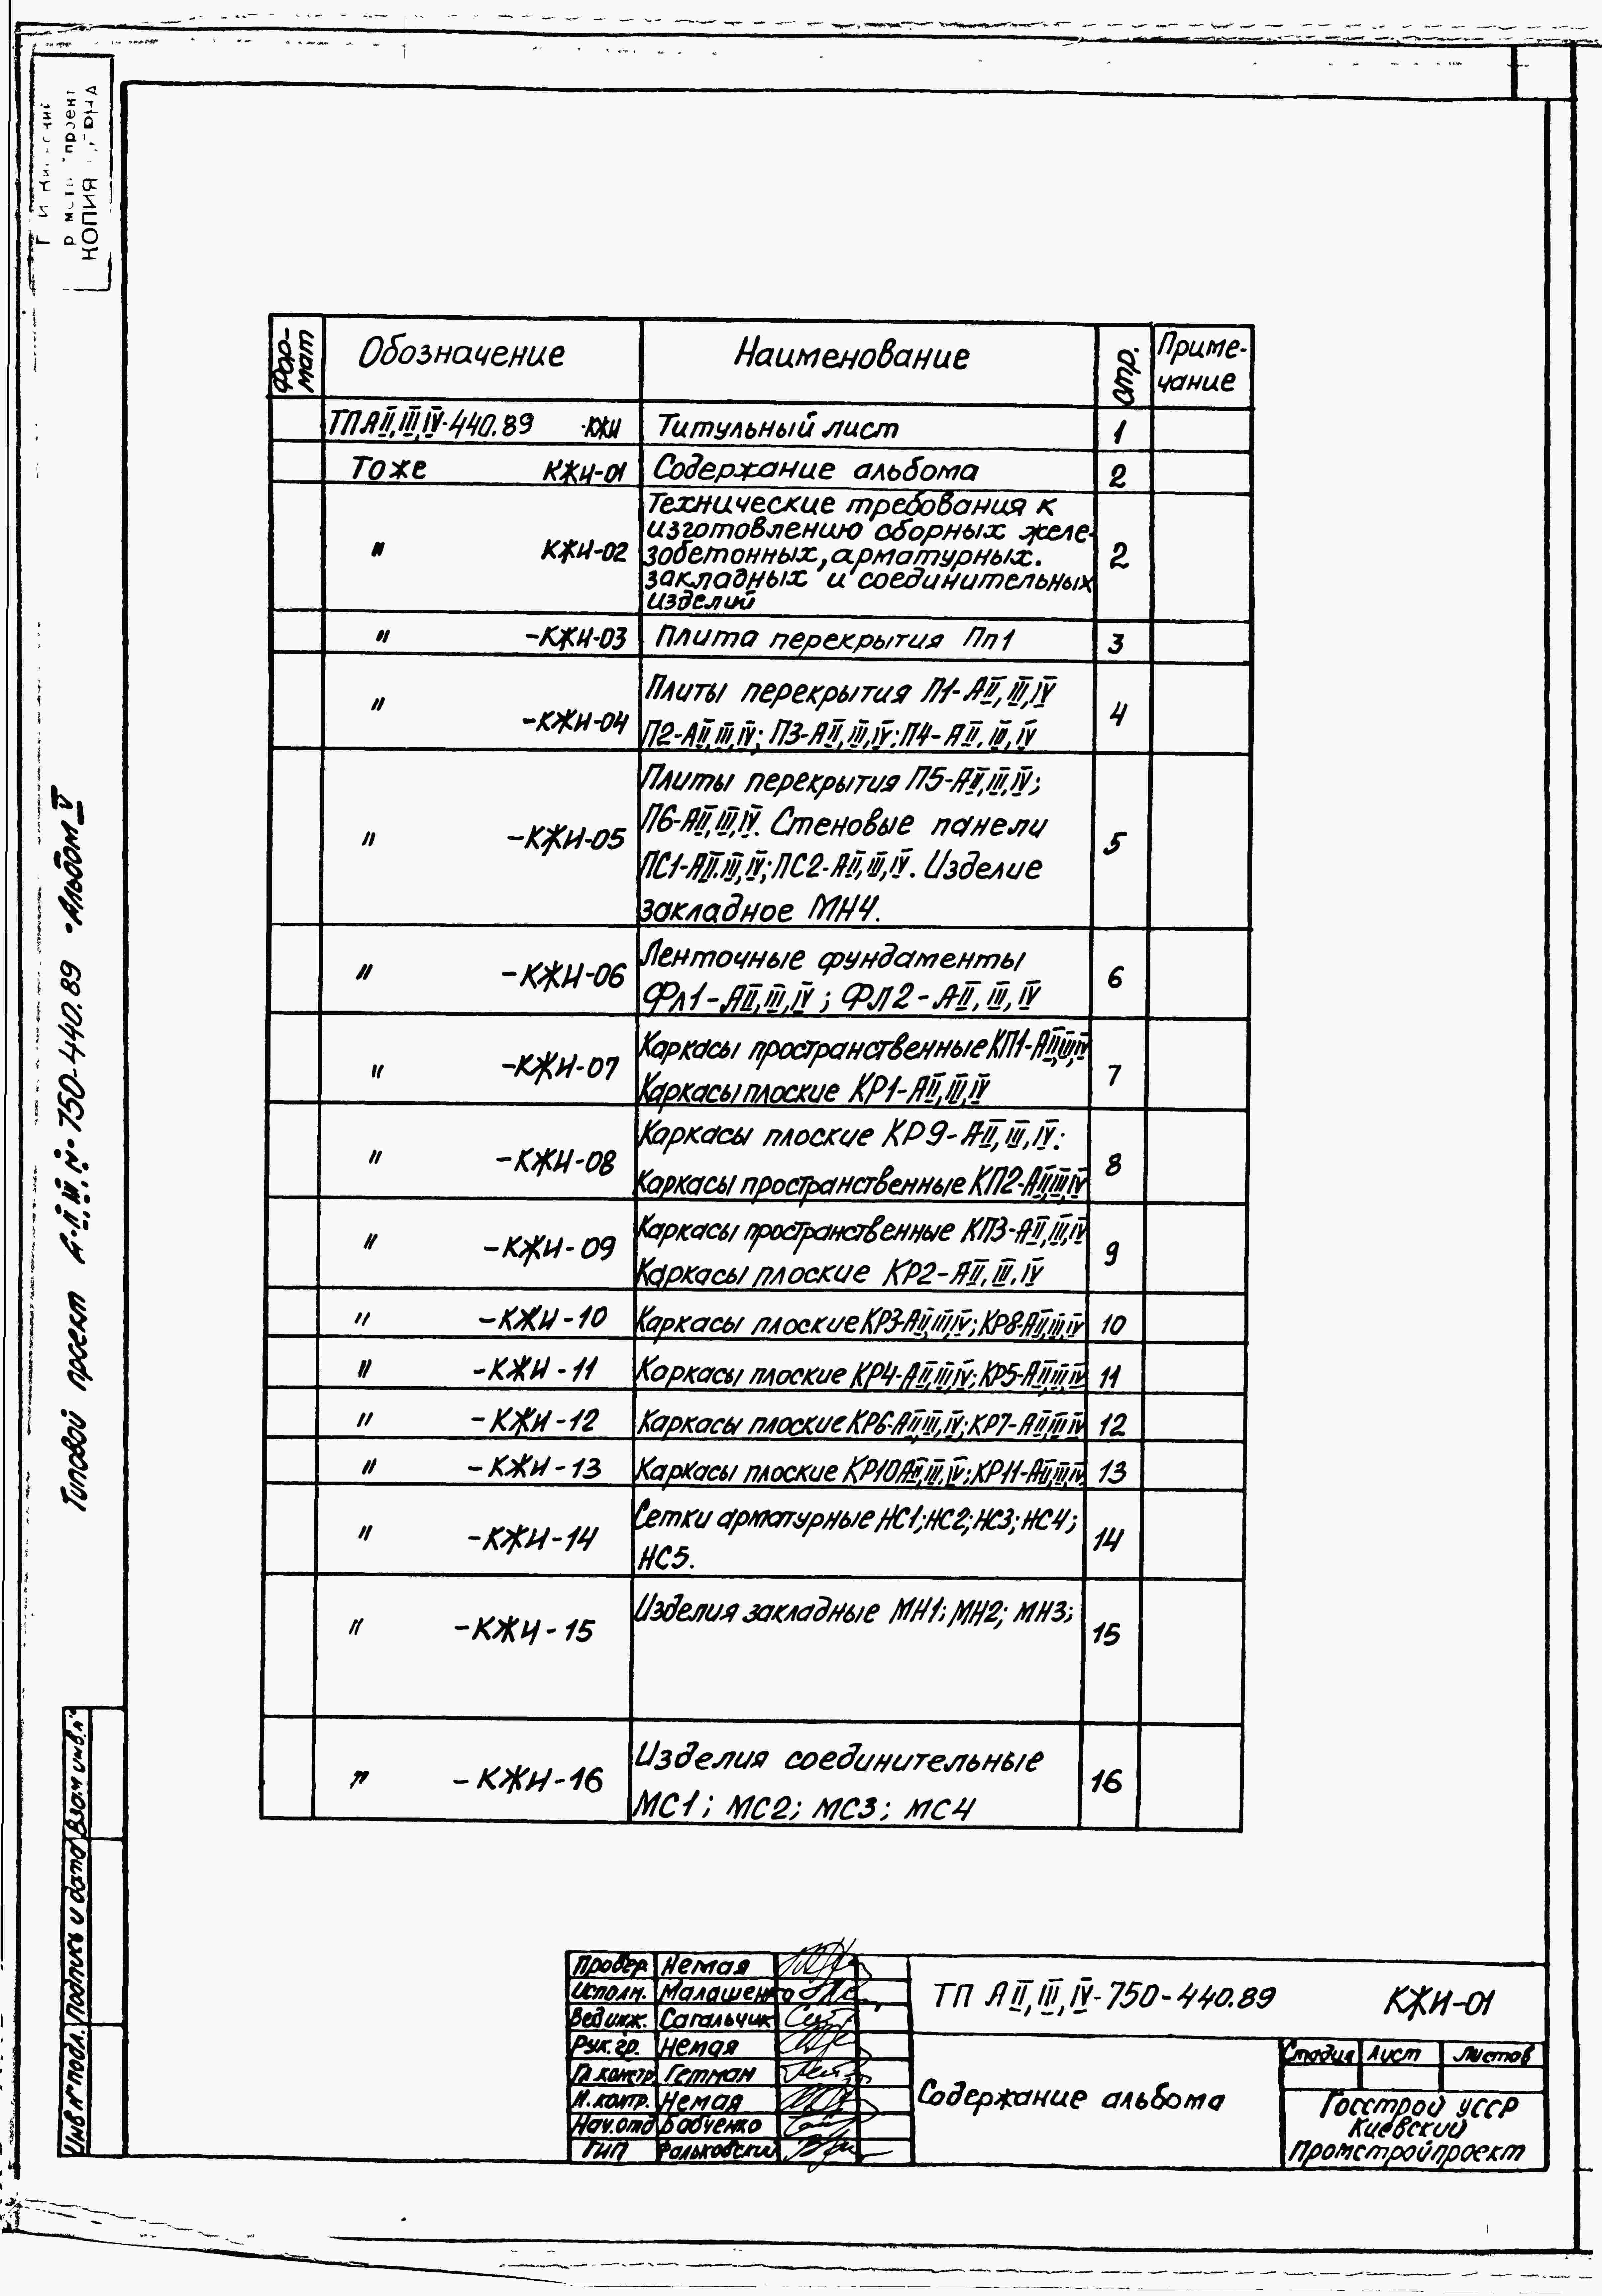 КОПИЯ
Типовой проект А-II,III,IV-750-440.89 •Альбом V
Фор-
мат
Обозначение
Наименование
стр.
Приме-
чание
ТП А II,III,IV-440.89 -КЖИ Титульный лист 1
Тоже КЖИ-01 Содержание альбома 2
" КЖИ-02 2
Технические требования к
изготовлению сборных желе-
зобетонных, арматурных.
закладных и соединительных
изделий
" -КЖИ-03 Плита перекрытия Пп1 3
" -КЖИ-04 4
Плиты перекрытия П1-АII,III,IV
П2-АII,III,IV; П3-АII,III,IV; П4-АII,III,IV
" -КЖИ-05 5
Плиты перекрытия П5-АII,III,IV;
П6-АII,III,IV. Стеновые панели
ПС1-АII.III,IV; ПС2-АII,III,IV. Изделие
закладное МН4.
" -КЖИ-06 6
Ленточные фундаменты
Фл1-АII,III,IV; ФЛ2-АII,III,IV
" -КЖИ-07 7
Каркасы пространственные КП1-АII,III,IV
Каркасы плоские КР1-АII,III,IV
" -КЖИ-08 8
Каркасы плоские КР9-АII,III,IV:
Каркасы пространственные КП2-АII,III,IV
" -КЖИ-09 9
Каркасы пространственные КП3-АII,III,IV
Каркасы плоские КР2-АII,III,IV
" -КЖИ-10 Каркасы плоские КР3-АII,III,IV; КР8-АII,III,IV 10
" -КЖИ-11 Каркасы плоские КР4-АII,III,IV; КР5-АII,III,IV 11
" -КЖИ-12 Каркасы плоские КР6-АII,III,IV; КР7-АII,III,IV 12
" -КЖИ-13 Каркасы плоские КР10АII,III,IV; КР11-АII,III,IV 13
" -КЖИ-14 14
Сетки арматурные НС1; НС2; НС3; НС4;
НС5.
" -КЖИ-15 Изделия закладные МН1; МН2; МН3; 15
" -КЖИ-16 16
Изделия соединительные
МС1; МС2; МС3; МС4
Взам инв.№
Подпись и дата
Инв № подл.
Провер. Немая
Исполн. Малашенко
Вед инж. Сагальчик
Рук.гр. Немая
Гл констр Гетман
Н.контр. Немая
Нач.отд Бабченко
ГИП Фальковский
ТП А II,III,IV-750-440.89 КЖИ-01
Содержание альбома
Стадия Лист Листов
Госстрой УССР
Киевский
Промстройпроект